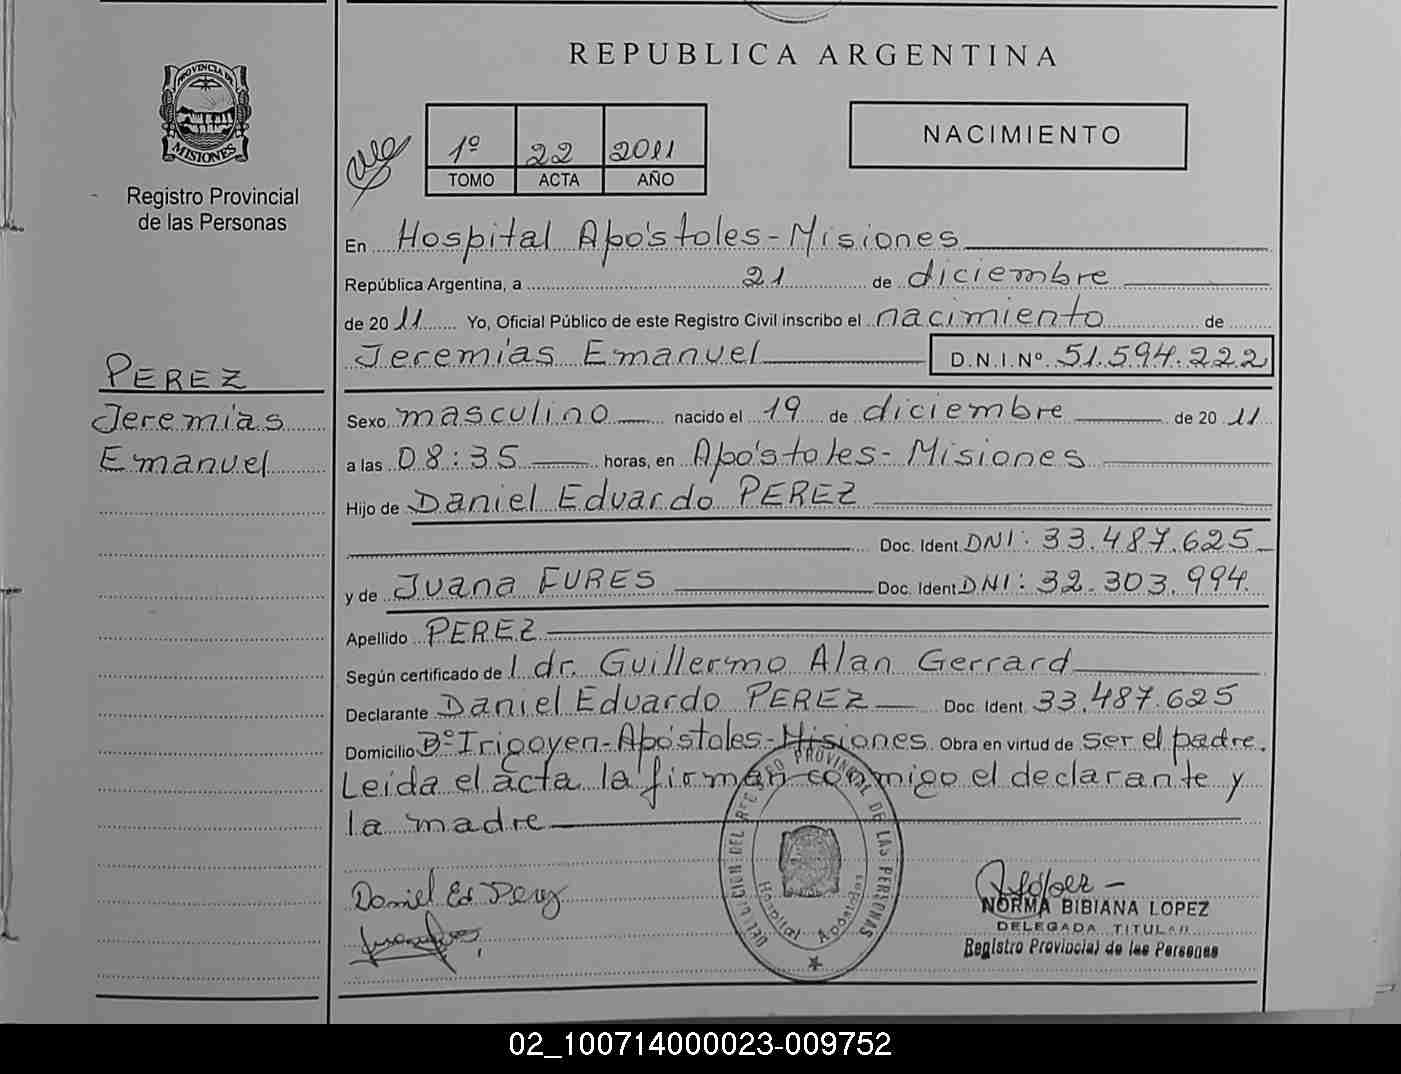 REPUBLICA ARGENTINA
PROVINCIA DE
MISIONES
Registro Provincial
de las Personas
1º 22 2011
TOMO ACTA AÑO
NACIMIENTO
En Hospital Apóstoles-Misiones
República Argentina, a 21 de diciembre
de 2011 Yo, Oficial Público de este Registro Civil inscribo el nacimiento de
Jeremías Emanuel D.N.I.Nº 51.594.222
PEREZ
Jeremías
Emanuel
Sexo masculino nacido el 19 de diciembre de 2011
a las 08:35 horas, en Apóstoles-Misiones
Hijo de Daniel Eduardo PEREZ
Doc. Ident. DNI: 33.487.625
y de Juana FURES Doc. Ident. DNI: 32.303.994.
Apellido PEREZ
Según certificado de l dr. Guillermo Alan Gerrard
Declarante Daniel Eduardo PEREZ Doc. Ident. 33.487.625
Domicilio Bº Irigoyen-Apóstoles-Misiones. Obra en virtud de ser el padre.
Leída el acta la firman conmigo el declarante y
la madre
DEL REGISTRO PROVINCIAL DE LAS PERSONAS
Hospital Apostoles
Daniel Ed Perez
NORMA BIBIANA LOPEZ
DELEGADA TITULAR
Registro Provincial de las Personas
02_100714000023-009752